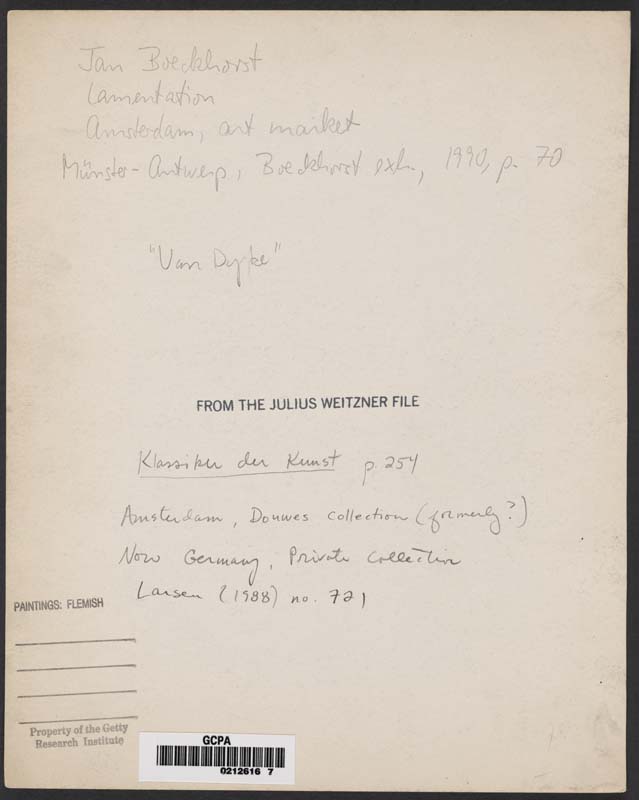 Jan Boeckhorst
Lamentation
Amsterdam, art market
Münster-Antwerp, Boeckhorst exh., 1990, p. 70
"Van Dyke"
FROM THE JULIUS WEITZNER FILE
Klassiker der Kunst p. 254
Amsterdam, Douwes collection (formerly?)
Now Germany, Private collection
Larsen (1988) no. 721
PAINTINGS: FLEMISH
Property of the Getty
Research Institute
GCPA
0212616 7